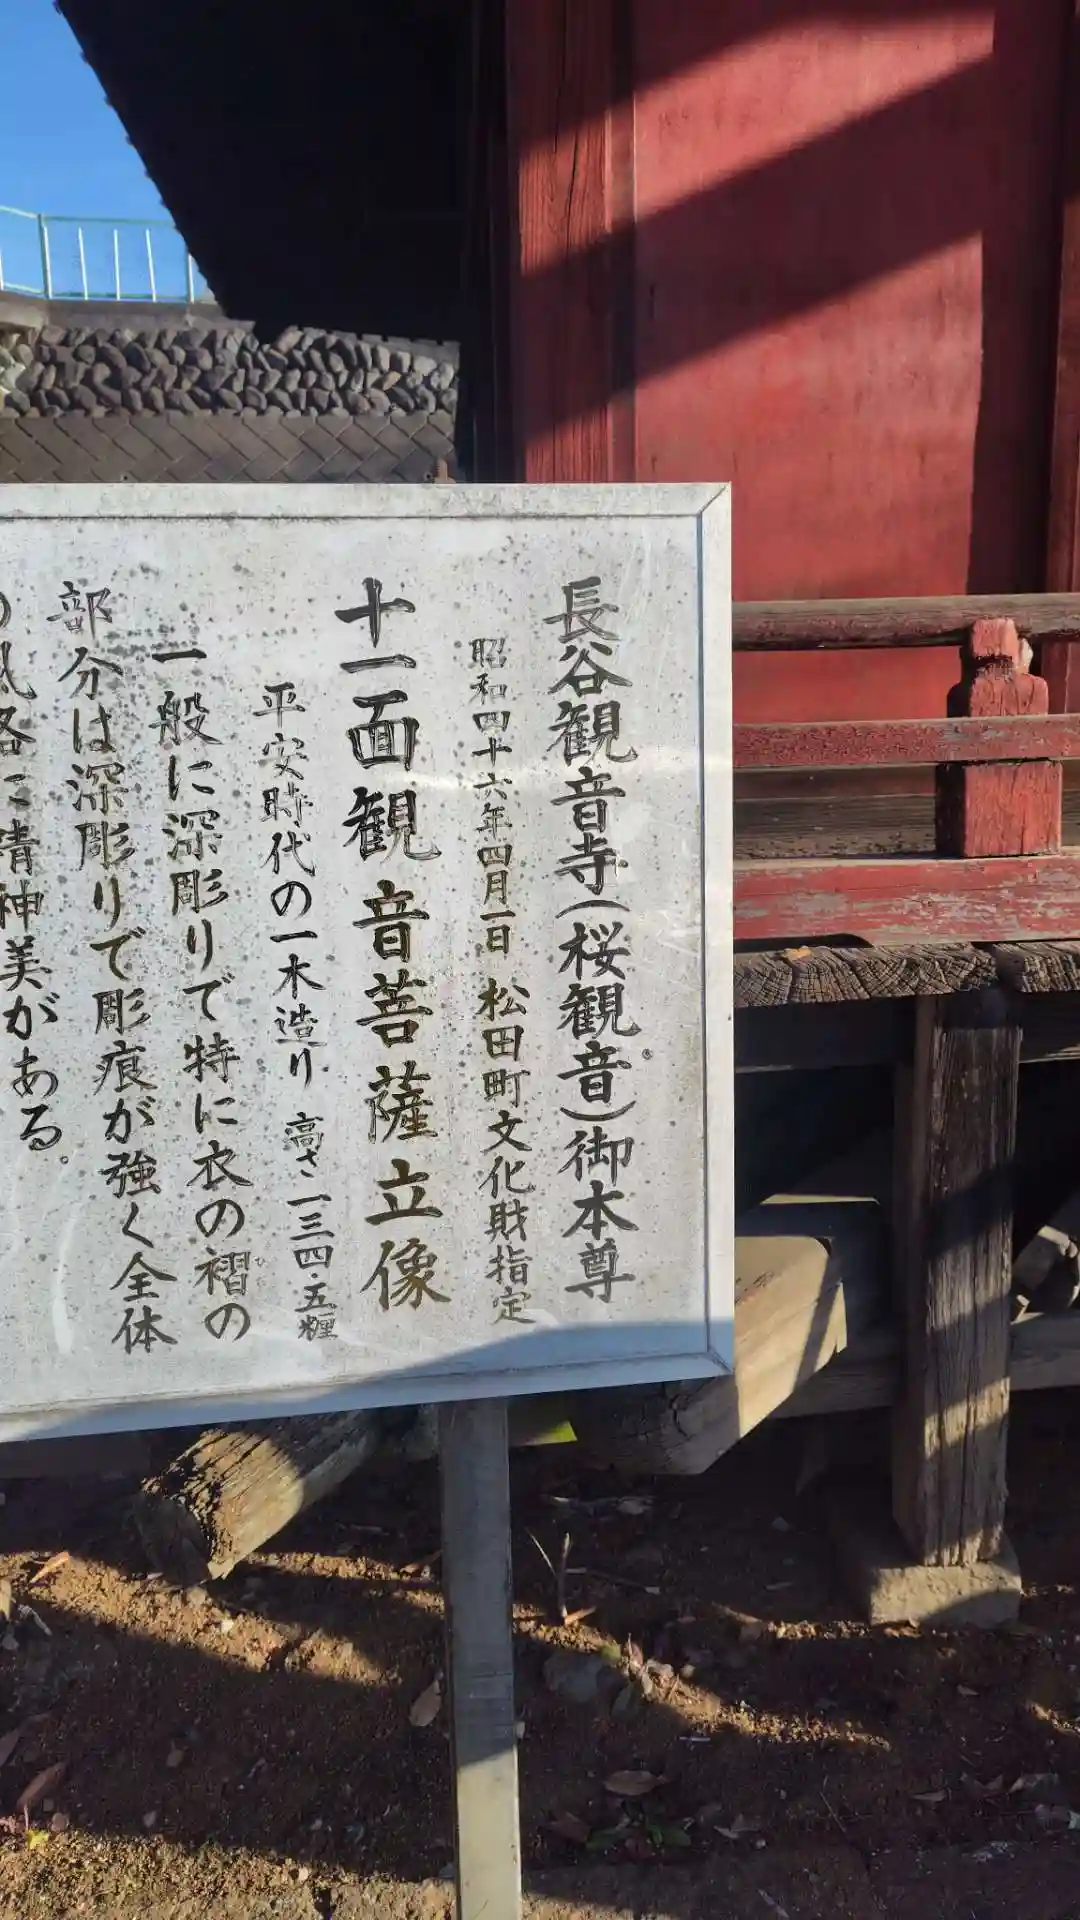 長谷観音寺(桜観音)御本尊
昭和四十六年四月一日 松田町文化財指定
十一面観音菩薩立像
平安時代の一木造り 高さ一三四・五糎
一般に深彫りで特に衣の褶の
ひだ
部分は深彫りで彫痕が強く全体
の風格に精神美がある。